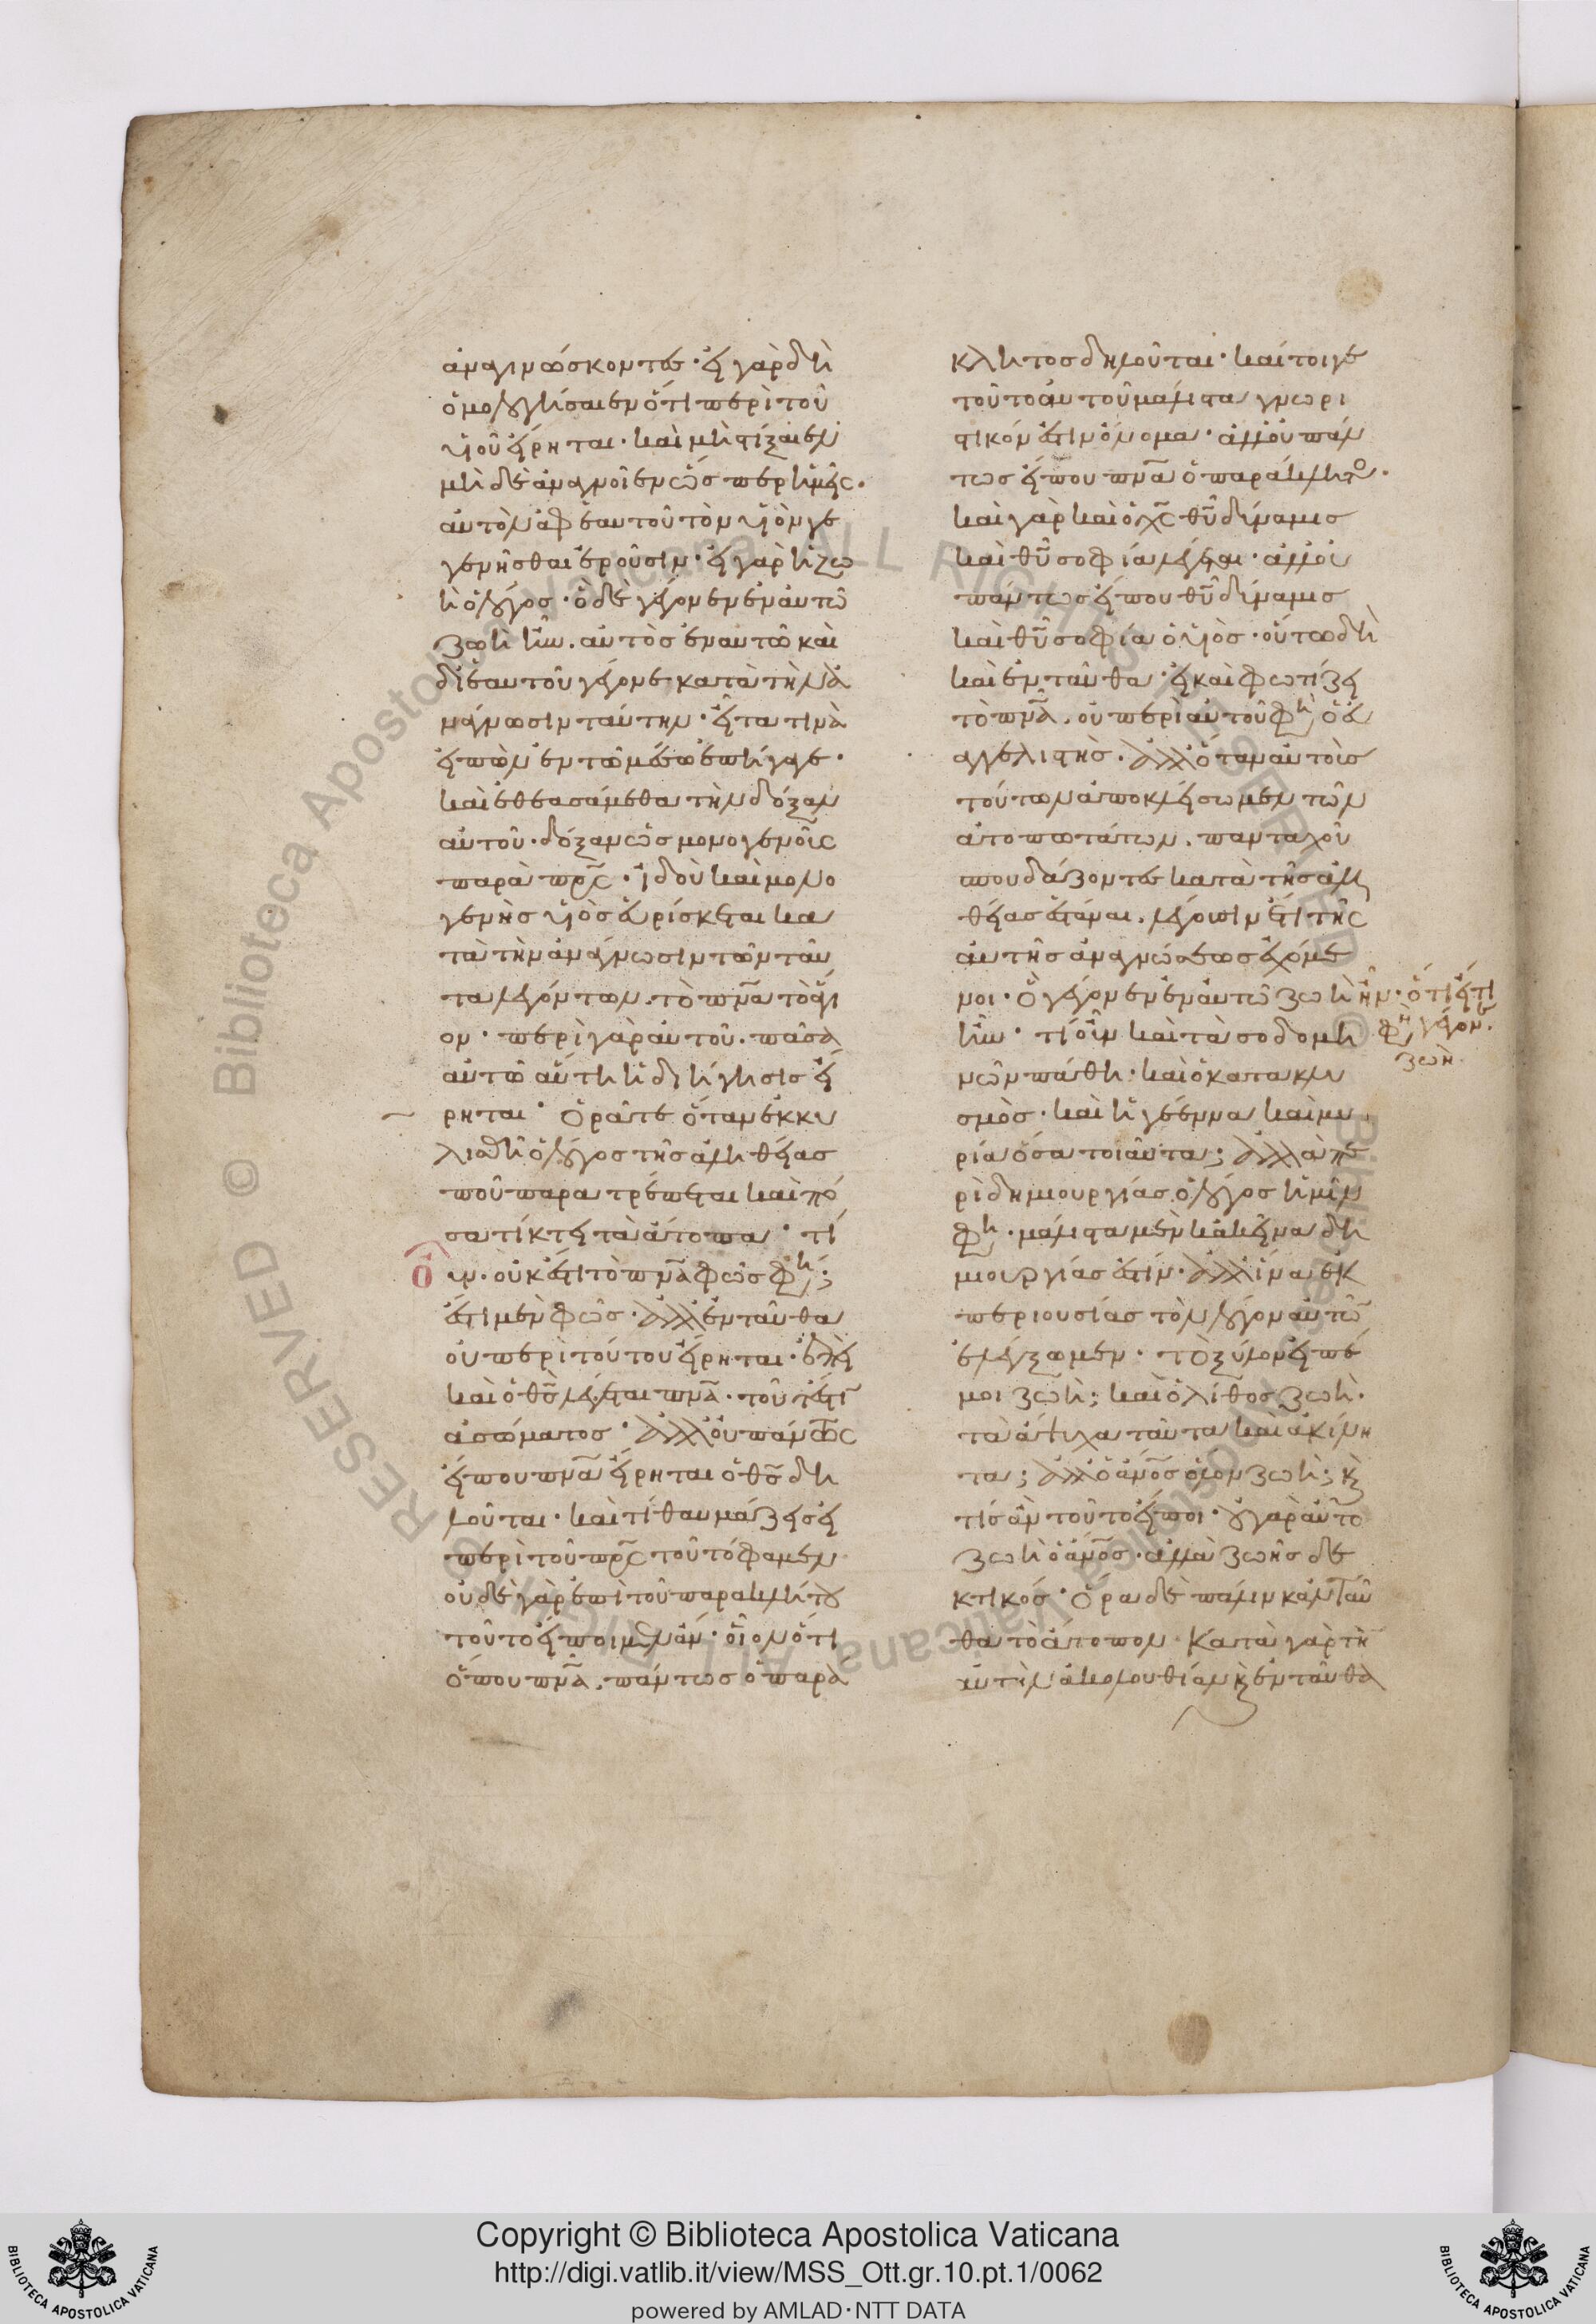 ἀναγινώσκοντες· εἰ γὰρ δὴ
ὁμολογήσαιεν ὅτι περὶ τοῦ
υἱοῦ εἴρηται· καὶ μὴ στίξαιεν
μὴ δὲ ἀναγνοῖεν ὥσπερ ἡμεῖς·
αὐτὸν ἀφ ἑαυτοῦ τὸν υἱὸν γε
γενῆσθαι ἐροῦσιν· εἰ γὰρ ἡ ζω
ὴ ὁ λόγος· ὃ δὲ γέγονεν ἐν αὐτῶ
ζωὴ ἦν. αὐτὸς ἐν αυτῶ καὶ
δι ἑαυτοῦ γέγονε κατὰ τὴν ἀ
νάγνωσιν ταύτην· εἶτα τινὰ
εἰπὼν ἐν τῶ μέσω ἐπήγαγε·
καὶ ἐθεασάμεθα τὴν δόξαν
αὐτοῦ· δόξαν ὡς μονογενοῦς
παρὰ πρς· ἰδοὺ καὶ μονο
γενὴς υἱὸς εὑρίσκεται κα
τὰ τὴν ἀνάγνωσιν τῶν ταῦ
τα λεγόντων. τὸ πνα τὸ ἅγι
ον· περὶ γὰρ αὐτοῦ. πᾶσα
αὐτῶ αὕτη ἡ διήγησις εἴ
ρηται· Ὁρᾶτε ὅταν ἐκκυ
λισθῆ ὁ λόγος τῆς ἀληθείας
ποῦ παρατρέπεται καὶ πό
σα τίκτει τὰ ἄτοπα· τί
οὖν. οὐκ ἔστι τὸ πνα φῶς φη;
ἔστι μὲν φῶς· ἀλλ ἐνταῦθα
οὐ περὶ τούτου εἴρηται· ἐπεὶ
καὶ ὁ θς λέγεται πνα. τοῦτέστιν
ἀσώματος· ἀλλ οὐ πάντως
εἴπου πνα εἴρηται ὁ θς δη
λοῦται· καὶ τί θαυμάζεις εἰ
περὶ τοῦ πρς τοῦτό φαμεν
οὐδὲ γὰρ ἐπὶ τοῦ παρακλήτου
τοῦτο εἴποιμεν ἄν· οἷον ὅτι
ὅπου πνα. πάντως ὁ παρά
κλητος δηλοῦται· καί τοιγε
τοῦτο αὐτοῦ μάλιστα γνωρι
στικόν ἐστιν ὄνομα· ἀλλ οὐ πάν
τως εἴπου πνα ὁ παράκλητος.
καὶ γὰρ καὶ ὁ χς θυ δύναμις
καὶ θυ σοφία λέγεται· ἀλλ οὐ
πάντως εἴπου θυ δύναμις
καὶ θυ σοφία ὁ υἱός· οὕτω δὴ
καὶ ἐνταῦθα· εἰ καὶ φωτίζει
τὸ πνα. οὐ περὶ αὐτοῦ φη ὁ εὐ
αγγελιστὴς· ἀλλ ὅταν αὐτοὺς
τούτων ἀποκλείσωμεν τῶν
ἀτοπωτάτων. πανταχοῦ
σπουδάζοντες κατὰ τῆς ἀλη
θείας ἱστάναι. λέγουσιν ἔτι τῆς
αὐτῆς ἀναγνώσεως ἐχόμε
νοι· ὃ γέγονεν ἐν αὐτῶ ζωὴ ἦν· ὅτι εἴ τι
φη γέγον.
ζωὴ
ἦν· τί οὖν καὶ τὰ σοδομη
νῶν πάθη· καὶ ὁ κατακλυ
σμὸς· καὶ ἡ γέεννα καὶ μυ
ρία ὅσα τοιαῦτα; ἀλλὰ πε
ρὶ δημιουργίας ὁ λόγος ἡμῖν
φη· μάλιστα μὲν κἀκεῖνα δη
μιουργίας ἐστίν· ἀλλ ἵνα ἐκ
περιουσίας τὸν λόγον αὐτῶν
ἐλέγξωμεν· τὸ ξύλον εἰπέ
μοι ζωὴ; καὶ ὁ λίθος ζωὴ·
τὰ ἄψυχα ταῦτα καὶ ἀκίνη
τα; ἀλλ ὁ ἄνος οἷον ζωὴ; κ
τίς ἂν τοῦτο εἴποι· οὐ γὰρ αὐτο
ζωὴ ὁ ἄνος· ἀλλὰ ζωῆς δε
κτικός· Ὅρα δὲ πάλιν κἀνταῦ
θα τὸ ἄτοπον· Κατὰ γὰρ τὴν
αὐτὴν ἀκολουθίαν κ ἐνταῦθα
Copyright © Biblioteca Apostolica Vaticana
http://digi.vatlib.it/view/MSS_Ott.gr.10.pt.1/0062
powered by AMLAD·NTT DATA